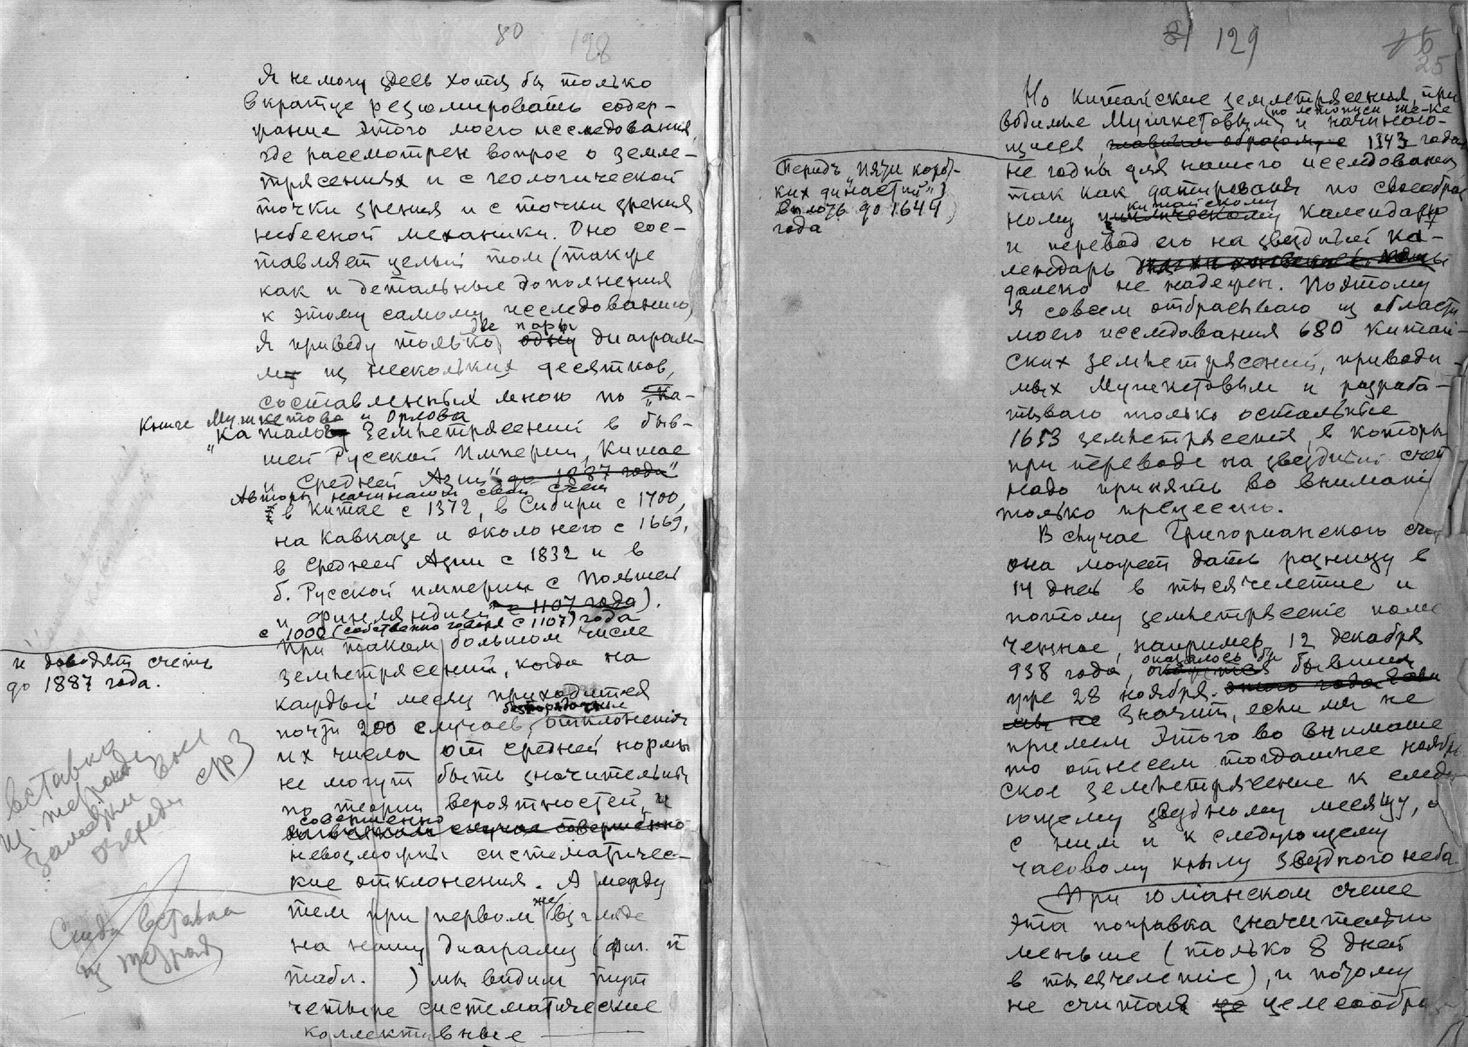 80 128
Я не могу здесь хотя бы только
вкратце резюмировать содер-
жание этого моего исследования,
где рассмотрен вопрос о земле-
трясениях и с геологической
точки зрения и с точки зрения
небесной механики. Оно сос-
тавляет целый том (также
как и детальные дополнения
к этому самому исследованию)
две пары
Я приведу только одну диаграм-
му из нескольких десятков,
составленных мною по "Ка-
Книге Мушкетова и Орлова
"Каталог Землетрясений в быв-
шей Русской Империи, Китае
и Средней Азии" до 1887 года"
Авторы начинают свой счет
в Китае с 1372, в Сибири с 1700,
на Кавказе и около него с 1669,
в Средней Азии с 1832 и в
б. Русской империи с Польшей
и Финляндией с 1107 года).
с 1000 (собственно говоря с 1107) года
и доводят счет
до 1887 года.
При таком большом числе
землетрясений, когда на
каждый месяц приходится
беспорядочные
почти 200 случаев, отклонения
их числа от средней нормы
не могут быть значительны
по теории вероятностей, и
совершенно
невозможны систематичес-
кие отклонения. А между
тем при первом же взгляде
на нашу диаграму (фиг. и
табл. ) мы видим тут
четыре систематические
коллективные
Вставка
из тетради
Заметки вне
очереди стр 3
Сюда вставка
из тетради
81 129
25
Но Китайские землетрясения, при
по летописи Ше-Ке
водимые Мушкетовым и начинаю-
щиеся главным образом с 1343 года
Период "пяти корот-
ких династий")
вплоть до 1644)
года
не годны для нашего исследования
так как датированы по своеобраз
китайскому
ному циклическому календарю
и перевод его на звездный ка-
лендарь
далеко не надежен. Поэтому
я совсем отбрасываю из области
моего исследования 680 китай-
ских землетрясений, приводи-
мых Мушкетовым и разраба-
тываю только остальные
1653 землетрясения, в которых
при переводе на звездный счет
надо принять во внимание
только прецессию.
В случае Григорианского счета
она может дать разницу в
14 дней в тысячелетие и
поэтому землетрясение поме
ченное, например, 12 декабря
оказалось бы
938 года, окажется бывшим
уже 28 ноября. этого года Если
мы не Значит, если мы не
примем этого во внимание
то отнесем тогдашнее ноябрь
ское землетрясение к следу
ющему звездному месяцу, а
с ним и к следующему
часовому крылу звездного неба.
При юлианском счете
эта поправка значительно
меньше (только 8 дней
в тысячелетие), и потому
не считая це целесообраз